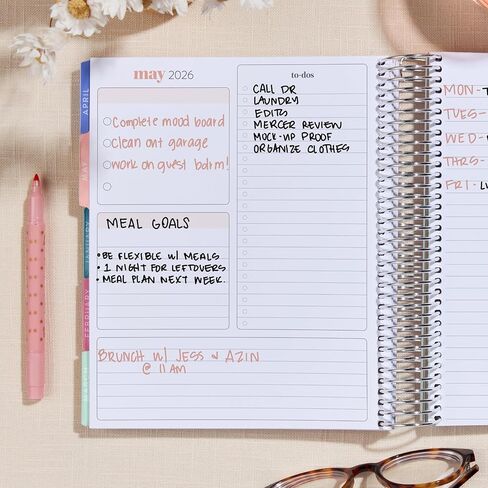 may 2026
Complete mood board
clean out garage
work on guest bdrm!
MEAL GOALS
• BE FLEXIBLE w/ MEALS
• 1 NIGHT FOR LEFTOVERS
• MEAL PLAN NEXT WEEK.
BRUNCH w/ JESS & AZIN
@ 11 AM
to-dos
CALL DR
LAUNDRY
EDITS
MERCER REVIEW
MOCK-UP PROOF
ORGANIZE CLOTHES
APRIL
MAY
JANUARY
FEBRUARY
MARCH
MON-
TUES-
WED-
THRS-
FRI-